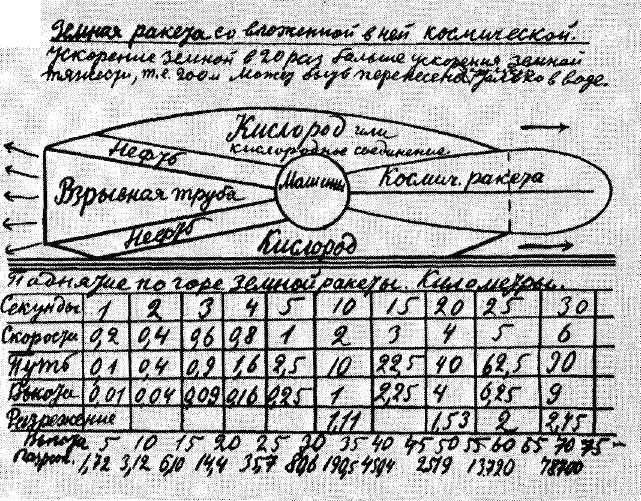 Земная ракета со вложенной в ней космической.
Ускорение земной в 20 раз больше ускорения земной
тяжести, т.е. 200 м Может быть перенесена только в воде.
Кислород или
кислородное соединение
Нефть
Машины
Космич. ракета
Взрывная труба
Нефть
Кислород
Поднятие по горе земной ракеты. Километры.
Секунды 1 2 3 4 5 10 15 20 25 30
Скорости 0,2 0,4 0,6 0,8 1 2 3 4 5 6
Путь 0,1 0,4 0,9 1,6 2,5 10 22,5 40 62,5 90
Высота 0,01 0,04 0,09 0,16 0,25 1 2,25 4 6,25 9
Разрежение 1,11 1,53 2 2,75
Высота 5 10 15 20 25 30 35 40 45 50 55 60 65 70 75
1,72 3,12 6,10 14,4 35,7 80,6 190,5 2519 13790 78700